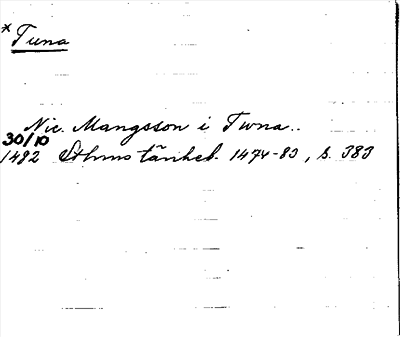 * Tuna
Nic. Mangsson i Twna..
30/10
1482 Sthms tänkeb. 1474-83, s. 383